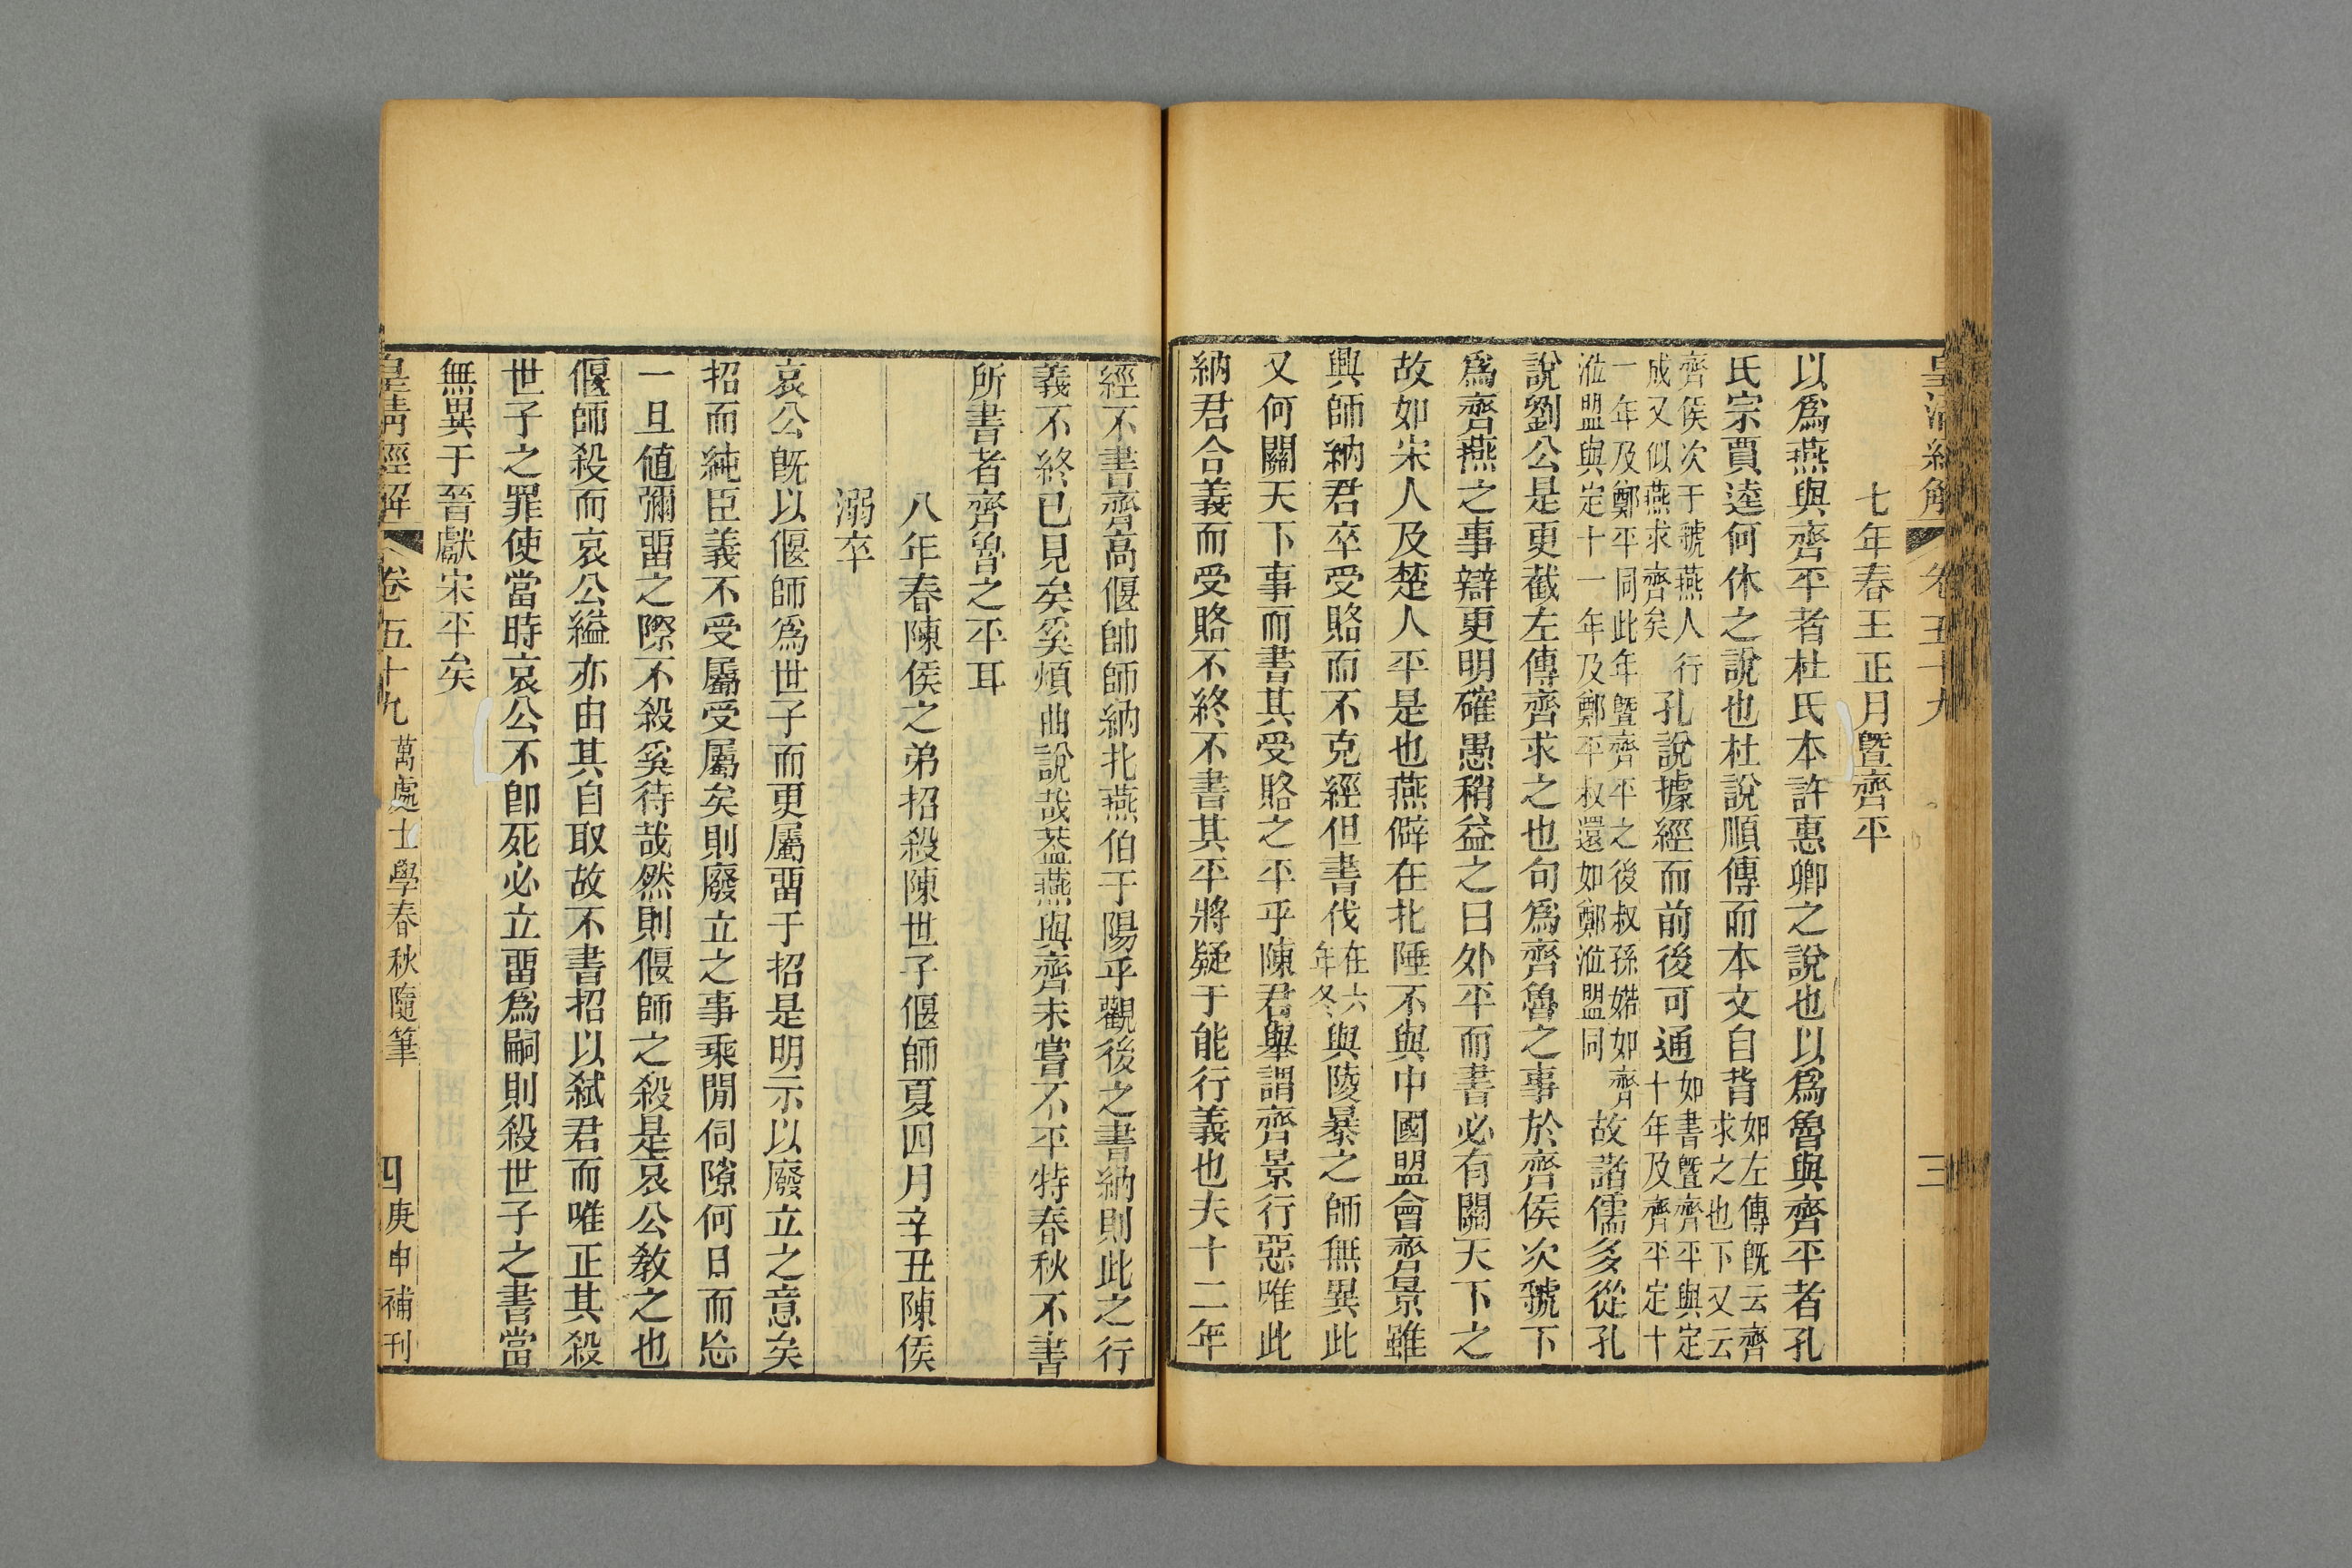 皇清經解 卷五十九 三
七年春王正月曁齊平
以爲燕與齊平者杜氏本許惠卿之說也以爲魯與齊平者孔
氏宗賈逵何休之說也杜說順傳而本文自背如左傳旣云齊求之也下又云
齊侯次于虢燕人行成又似燕求齊矣孔說據經而前後可通如書曁齊平與定十年及齊平定十
一年及鄭平同此年曁齊平之後叔孫婼如齊涖盟與定十一年及鄭平叔還如鄭涖盟同故諸儒多從孔
說劉公是更截左傳齊求之也句爲齊魯之事於齊侯次虢下
爲齊燕之事辯更明確愚稍益之曰外平而書必有關天下之
故如宋人及楚人平是也燕僻在北陲不與中國盟會齊景雖
興師納君卒受賂而不克經但書伐在六年冬與陵暴之師無異此
又何關天下事而書其受賂之平乎陳君舉謂齊景行惡唯此
納君合義而受賂不終不書其平將疑于能行義也夫十二年
經不書齊高偃帥師納北燕伯于陽乎觀後之書納則此之行
義不終已見矣奚煩曲說哉葢燕與齊未嘗不平特春秋不書
所書者齊魯之平耳
八年春陳侯之弟招殺陳世子偃師夏四月辛丑陳侯
溺卒
哀公旣以偃師爲世子而更屬畱于招是明示以廢立之意矣
招而純臣義不受屬受屬矣則廢立之事乘閒伺隙何日而忘
一旦値彌畱之際不殺奚待哉然則偃師之殺是哀公敎之也
偃師殺而哀公縊亦由其自取故不書招以弑君而唯正其殺
世子之罪使當時哀公不卽死必立畱爲嗣則殺世子之書當
無異于晉獻宋平矣
皇清經解 卷五十九 萬處士學春秋隨筆 四 庚申補刊